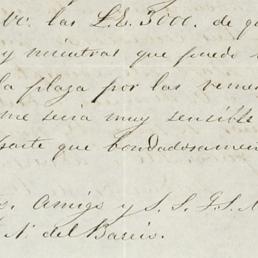 las L.E. 3000. de
y mientras que puedo
la plaza por las
me seria muy sensible
parte que bondadosamen
Amigo y S. S.
N. del Barrio.